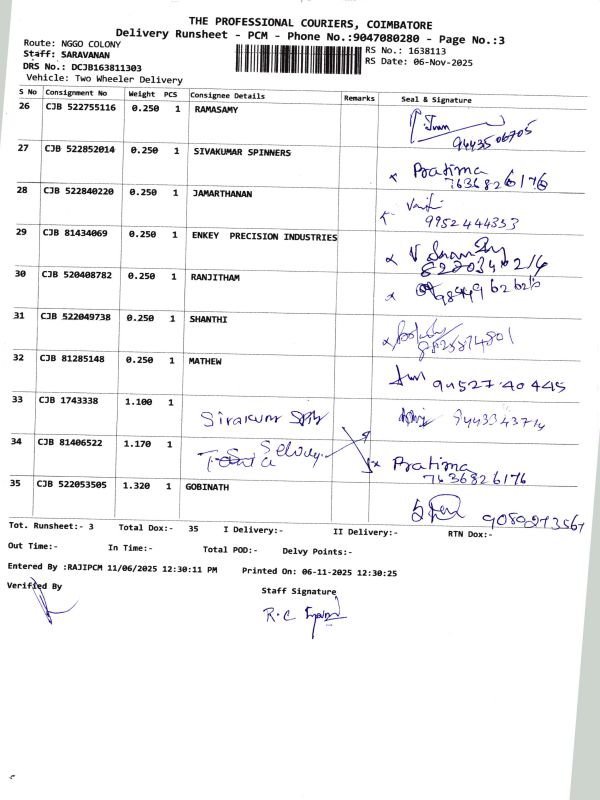 THE PROFESSIONAL COURIERS, COIMBATORE
Delivery Runsheet - PCM - Phone No.:9047080280 - Page No.:3
Route: NGGO COLONY
RS No.: 1638113
Staff: SARAVANAN
RS Date: 06-Nov-2025
DRS No.: DCJB163811303
Vehicle: Two Wheeler Delivery
S No Consignment No Weight PCS Consignee Details Remarks Seal & Signature
26 CJB 522755116 0.250 1 RAMASAMY
9443506705
27 CJB 522852014 0.250 1 SIVAKUMAR SPINNERS
Pratima
7636826176
28 CJB 522840220 0.250 1 JAMARTHANAN
9952444353
29 CJB 81434069 0.250 1 ENKEY PRECISION INDUSTRIES
30 CJB 520408782 0.250 1 RANJITHAM
31 CJB 522049738 0.250 1 SHANTHI
32 CJB 81285148 0.250 1 MATHEW
9952740445
33 CJB 1743338 1.100 1
34 CJB 81406522 1.170 1
Pratima
7636826176
35 CJB 522053505 1.320 1 GOBINATH
9080273567
Tot. Runsheet:- 3 Total Dox:- 35 I Delivery:- II Delivery:- RTN Dox:-
Out Time:- In Time:- Total POD:- Delvy Points:-
Entered By :RAJIPCM 11/06/2025 12:30:11 PM Printed On: 06-11-2025 12:30:25
Verified By
Staff Signature